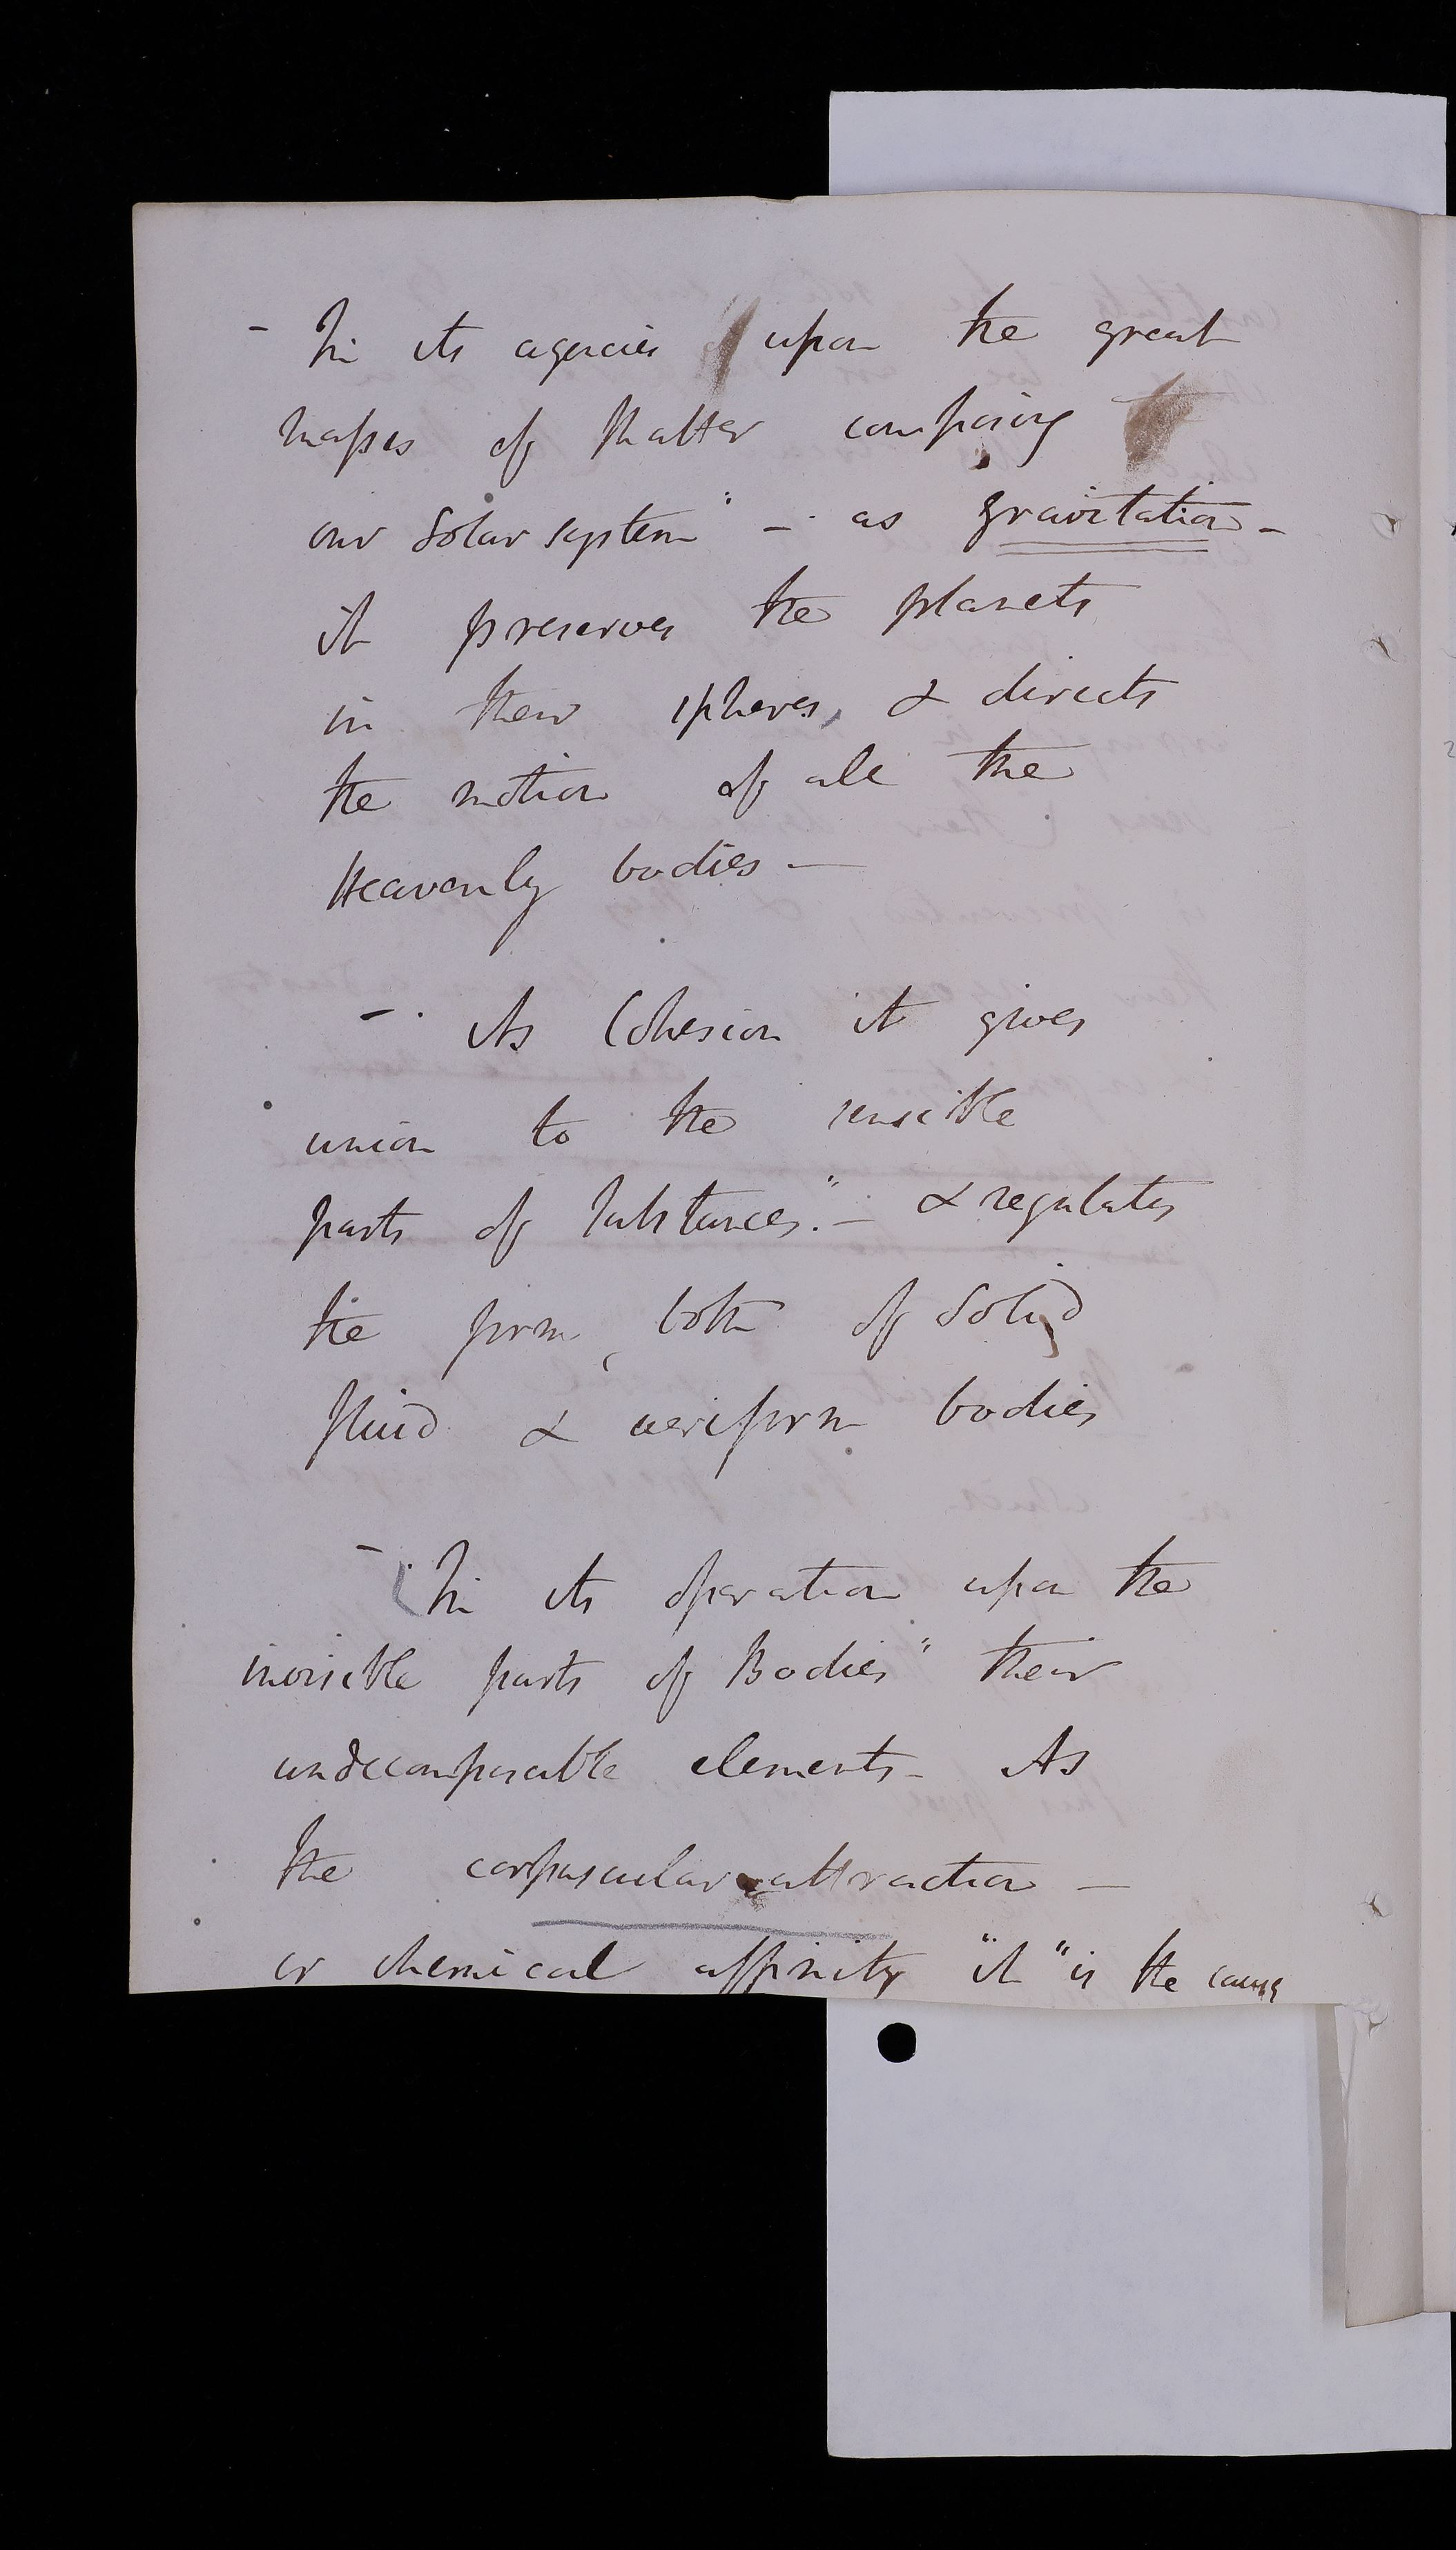 - In its agencies upon the great
masses of Matter composing
our Solar system" - as gravitation -
it preserves the planets
in their spheres, & directs
the motion of all the
Heavenly bodies —
- As Cohesion it gives
union to the sensible
parts of Substances." - & regulates
the form, both of Solid
fluid & aeriform bodies
- In its operation upon the
invisible parts of Bodies" their
undecomposable elements - As
the corpuscular attraction -
or chemical affinity "it "is the cause